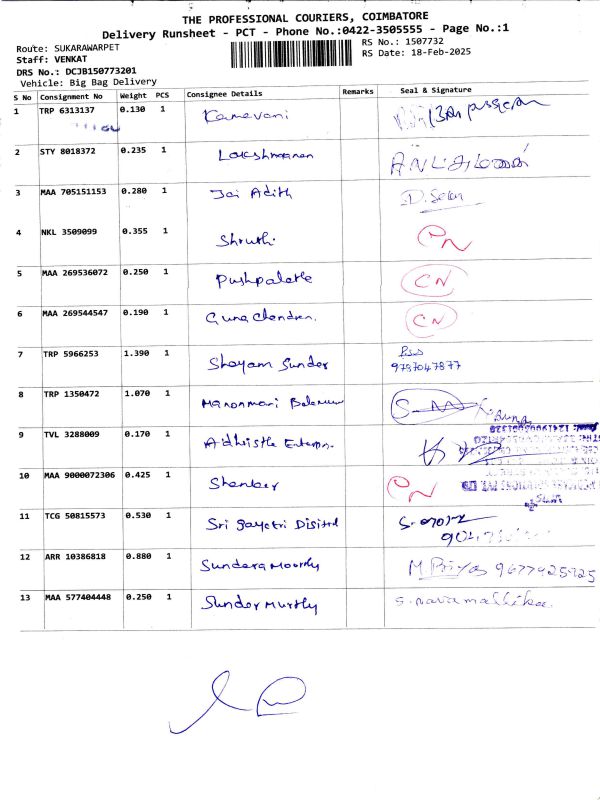 THE PROFESSIONAL COURIERS, COIMBATORE
Delivery Runsheet - PCT - Phone No.:0422-3505555 - Page No.:1
Route: SUKARAWARPET
RS No.: 1507732
Staff: VENKAT
RS Date: 18-Feb-2025
DRS No.: DCJB150773201
Vehicle: Big Bag Delivery
S No Consignment No Weight PCS Consignee Details Remarks Seal & Signature
1 TRP 6313137 0.130 1
2 STY 8018372 0.235 1 Lakshmanan
3 MAA 705151153 0.280 1 Jai Adith
4 NKL 3509099 0.355 1 Shruthi
5 MAA 269536072 0.250 1 Pushpalathe CN
6 MAA 269544547 0.190 1 Guna Chendren. CN
7 TRP 5966253 1.390 1 Shayam Sunder
8 TRP 1350472 1.070 1
9 TVL 3288009 0.170 1
10 MAA 9000072306 0.425 1 Shanker
11 TCG 50815573 0.530 1 Sri Gayatri
12 ARR 10386818 0.880 1 Sundara Moorthy M Priya 9677425925
13 MAA 577404448 0.250 1 Sunder Murthy S. nava mallika